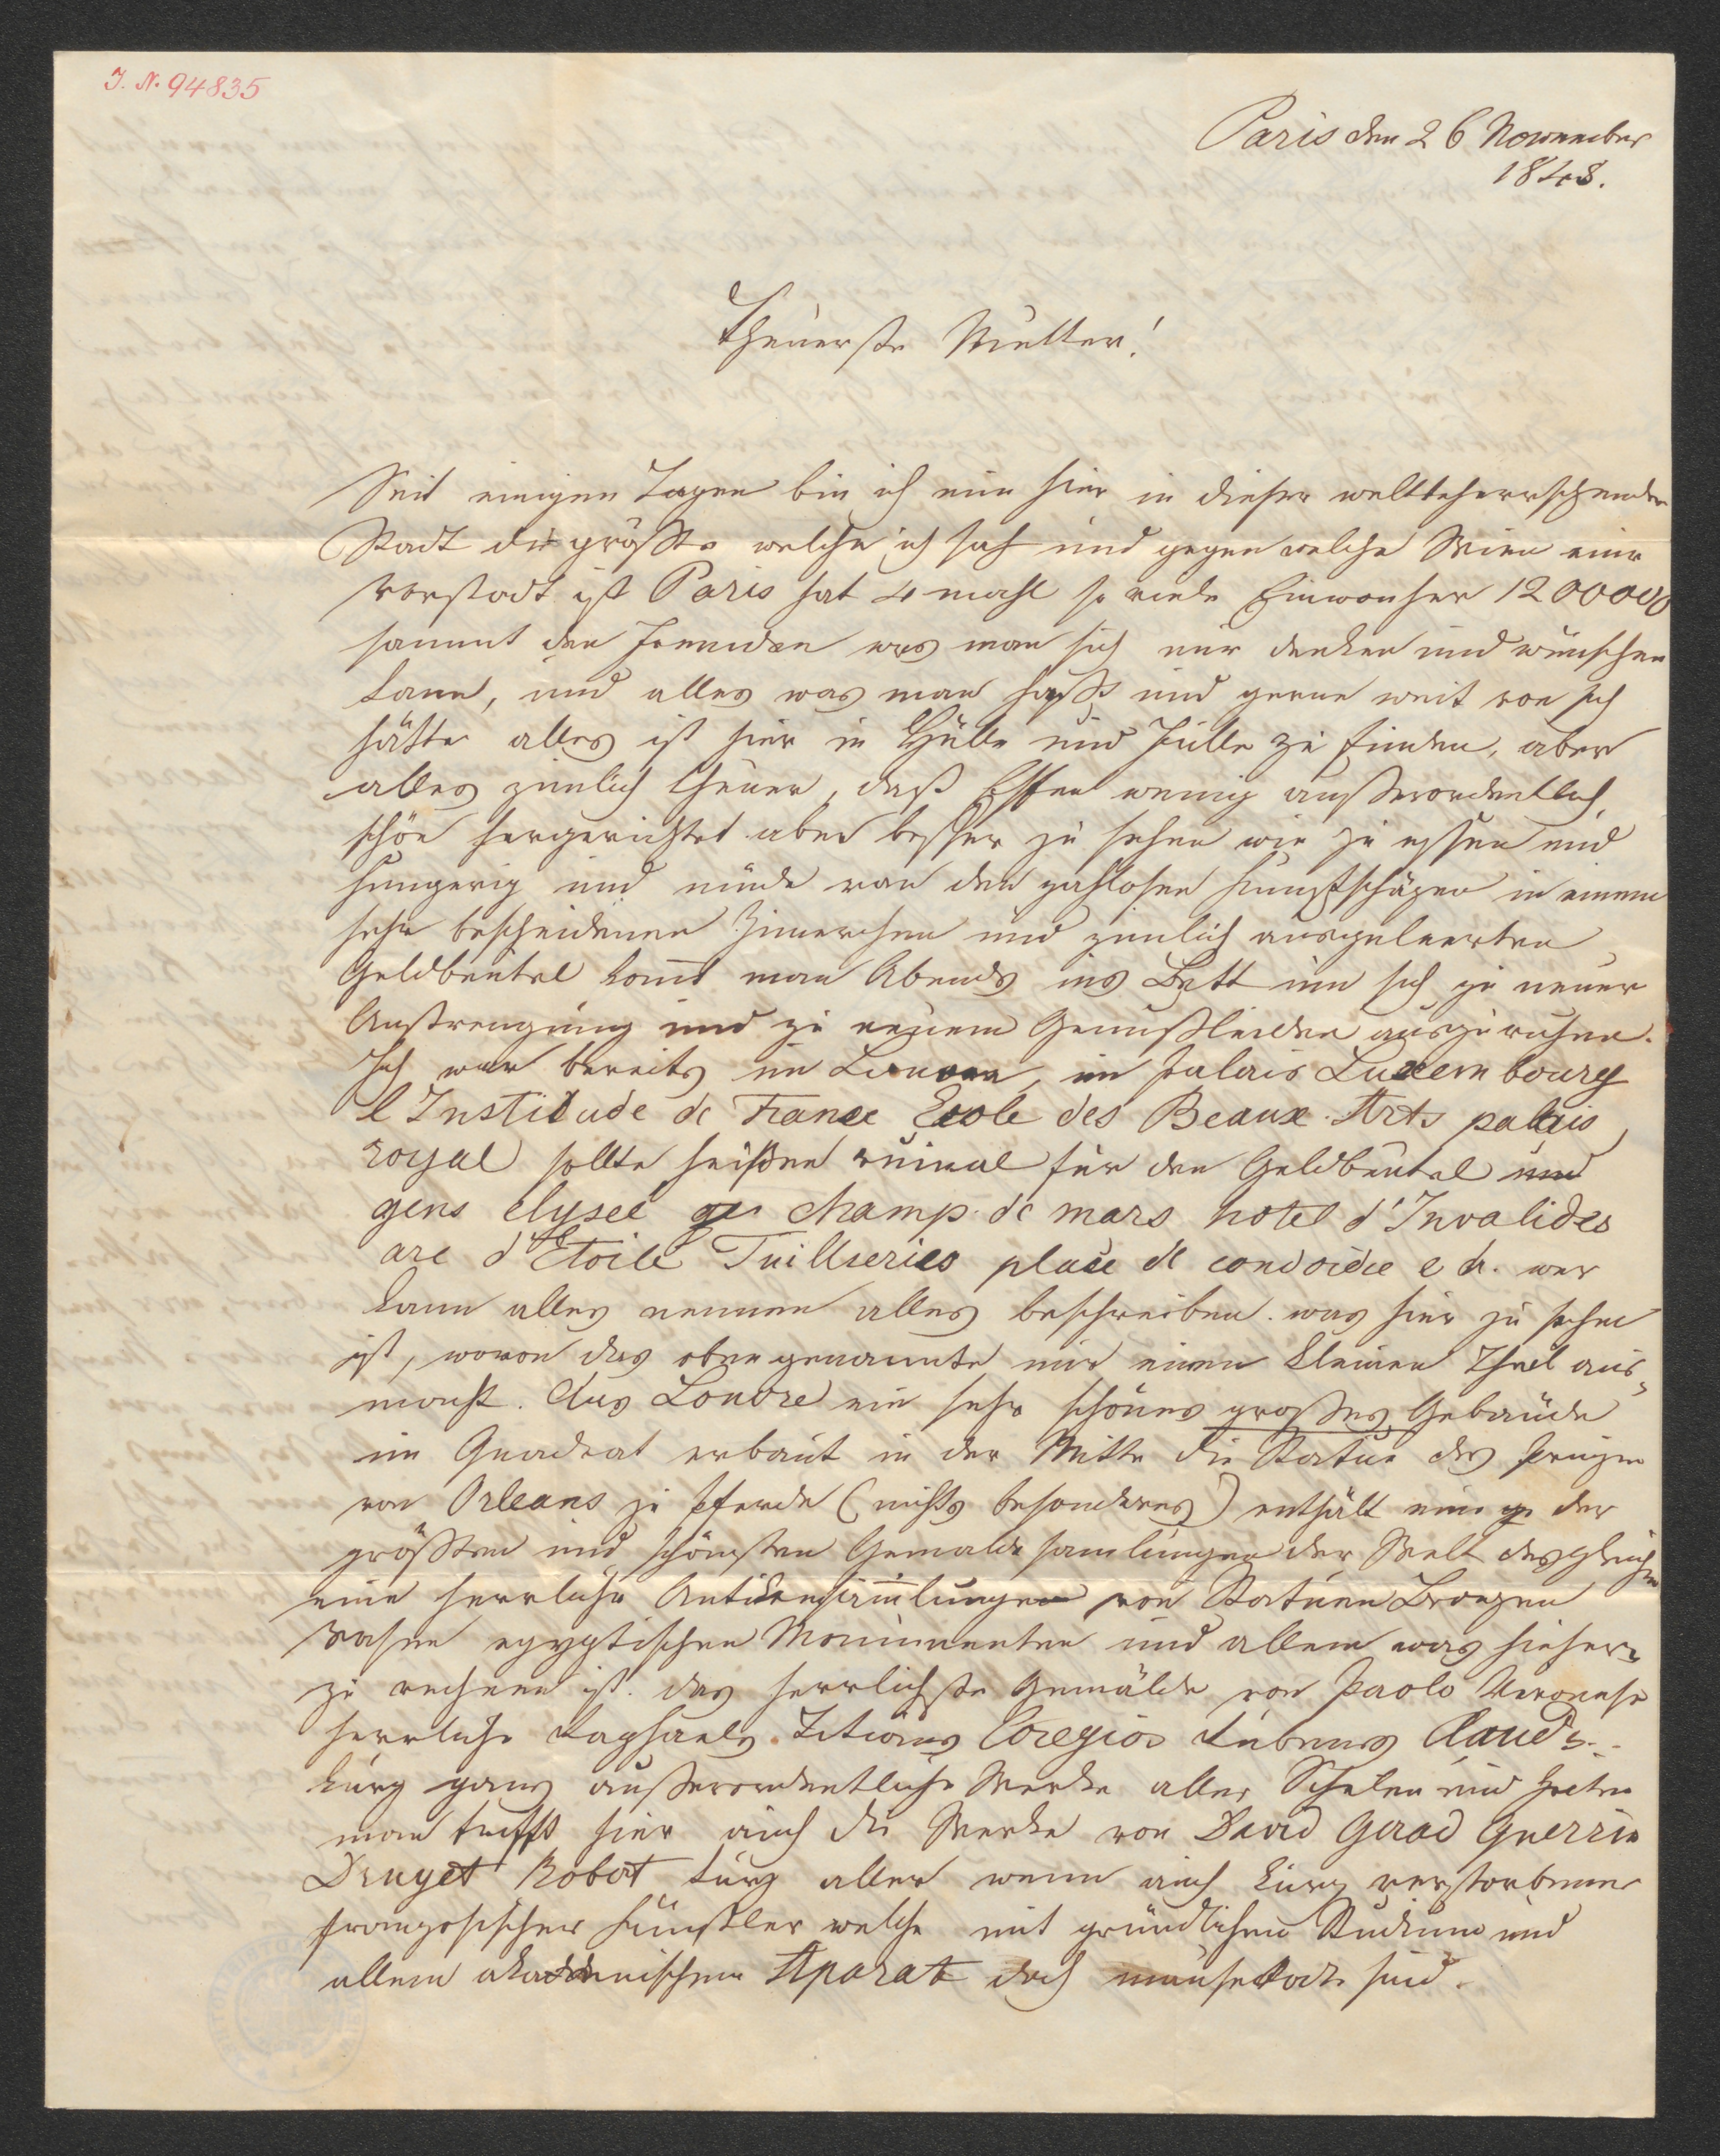 J. N. 94835
Paris den 26 Nowember
1848.
Theuerste Mutter!
Seit einigen Tagen bin ich nun hier in dieser weltbeherrschenden
Stadt die größte welche ich sah und gegen welche Wien eine
Vorstadt ist Paris hat 4 mahl so viele Einwonher 1200000
sammt den Fremden was man sich nur denken und wünschen
kann, und alles was man haßt und gerne weit von sich
hätte alles ist hier in Hülle und Fülle zu finden, aber
alles zimlich theuer, daß Essen wenig außerordentlich
schön hergerichtet aber besser zu sehen wie zu essen und
hungerig und müde von den zahlosen Kunstschäzen in einem
sehr bescheidenen Zimerchen und zimlich ausgeleerten
Geldbeutel komt man Abends ins Bett um sich zu neuer
Anstrengung und zu neuem Genußleiden auszuruhen.
Ich war bereits im Louvre, im Palais Luxembourg
l'Institude de France Ecole des Beaux Arts palais
royal sollte heißen ruinal für den Geldbeutel und
gens elyseé champ de mars hotel d'Invalides
arc d'Etoile Tuillseries place de condoidce e d. wer
kann alles nennen alles beschreiben. was hier zu sehen
ist, wovon das oben genannte nur einen kleinen Theil aus-
macht. Das Louvre ein sehr schönes großes Gebäude
im Quadrat erbaut in der Mitte die Statue des Prinzen
von Orleans zu Pferde (nichts besonderes) enthält eine der
größten und schönsten Gemälde samlungen der Welt desgleichen
eine herrliche Antikensammlungen von Statuen Bronzen
Vasen egyptischen Monumenten und allem was hieher-
zu rechnen ist. das herrlichste Gemälde von Paolo Veronese
herrliche Raphaels Titians Coregios Rubens Claud's..
kurz ganz außerordentliche Werke aller Schulen und Zeiten
man trifft hier auch die Werke von David Gerad Guerrin
Druget Robert kurz aller wenn auch kurz verstorbener
französischer Künstler welche mit gründlichen Studium und
allem akademischem Aparat doch mausetodt sind.